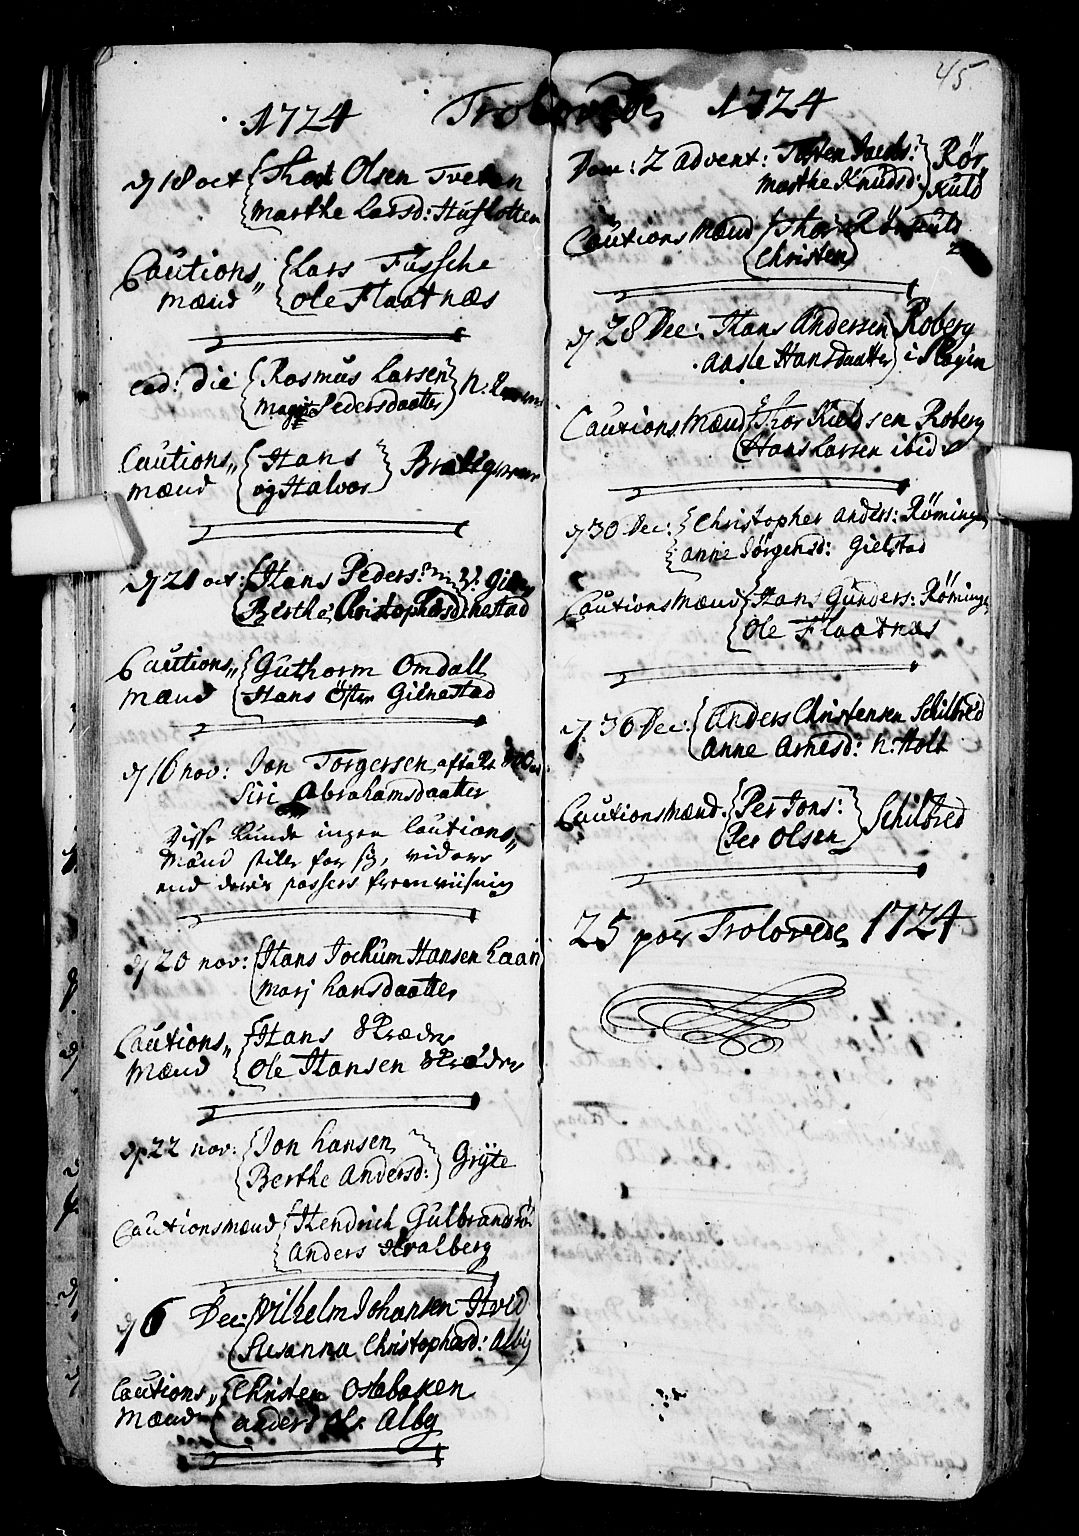 1724 Trolovede
d 18 oct Thor Olsen Tveten
Marthe Larsd: Huslotten
Cautions Lars Füssche
mænd Ole Flaatnæs
eod: die Rasmus Larsen
Magnild Pedersdaatter
Cautions Hans
mænd og Halvor
d 21 oct: Hans Peders:
Berthe Christophersd
Cautions Guthorm Omdall
mænd Hans Öster Gilnestad
d 16 nov: Jon Torgersen
Siri Abrahamsdaatter
Disse kunde ingen Cautions
Mænd stille for sig, videre
end deris passers fremviisning
d 20 nov: Hans Jochum Hansen Laan
Mari hansdaatter
Cautions Hans Skræder
Mænd Ole Hansen Skræder
d 22 nov: Jon hansen
Berthe Andersd: Gryte
Cautionsmænd Hendrich Gulbrands
Anders Hvalberg
d 6 Dec: Wilhelm Johansen Hvid
Susanna Christophersd: Alby
Cautions Christen Oslebaken
Mænd anders Ols: Alby
1724
45.
Dom: 2 advent: Tosten Jacobs: Rør
Marthe Knudsd: kuld
Cautions Mænd Thor Rørkuld
Christen
d 28 Dec: Hans Andersen Roberg
aasle Hansdaatter i Slagen
Cautions Mænd Thor Kieldsen Roberg
Hans Larsen ibid
d 30 Dec: Christopher Anders: Röminge
Anne Jörgensd: Gielstad
Cautions Mænd Hans Gunders: Röminge
Ole Flaatnæs
d 30 Dec: Anders Christensen Schilbred
Anne Arnesd: N: Holt
Cautions Mænd: Per Jons: Schilbred
Per Olsen
25 par Trolovede 1724